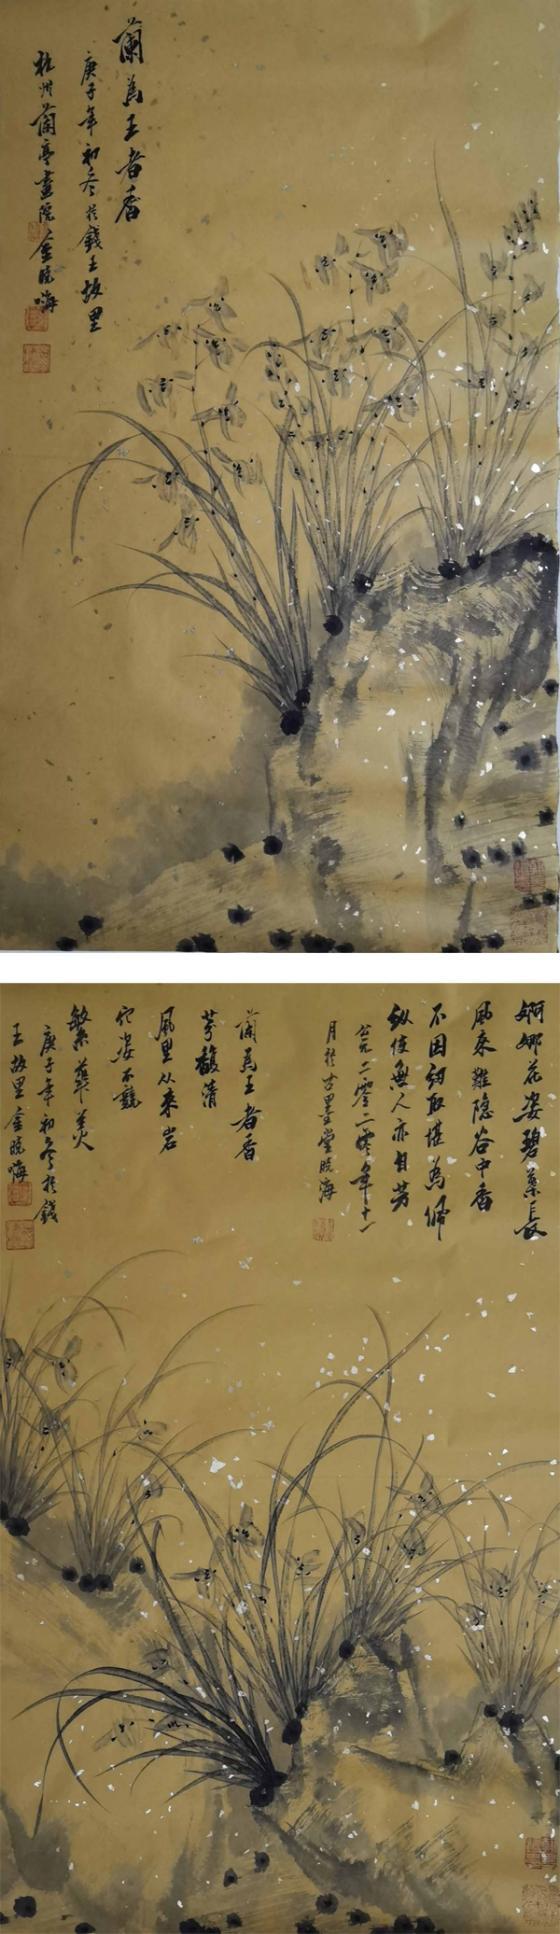 蘭為王者香
庚子年初冬於錢王故里
杭州蘭亭畫院金晓海
婀娜花姿碧葉長
風來難隐谷中香
不因紉取堪為佩
纵使無人亦自芳
公元二零二零年十一
月於芸墨堂晓海
蘭為王者香
芬馥清
風里从来岩
穴姿不競
繁華美
庚子年初冬於錢
王故里金晓海